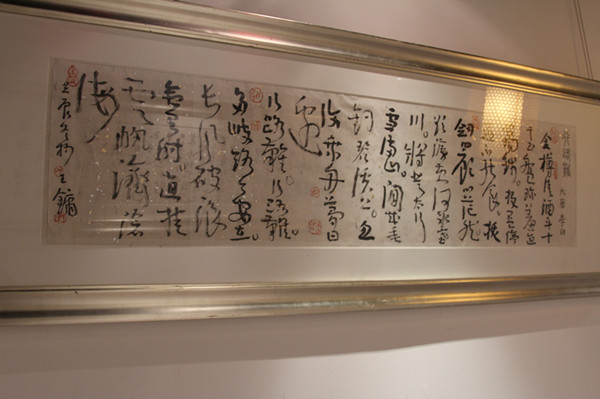 行路難 大唐 李白
金樽清酒斗十
千玉盤珍羞直
萬錢停杯投箸
不能食。拔
劍四顧心茫然
欲渡黃河冰塞
川。將登太行
雪滿山。閑來垂
釣碧溪上。忽
復乘舟夢日
邊
行路難。行路難。
多岐路今安在。
長風破浪
會有時。直挂
雲帆濟滄
海